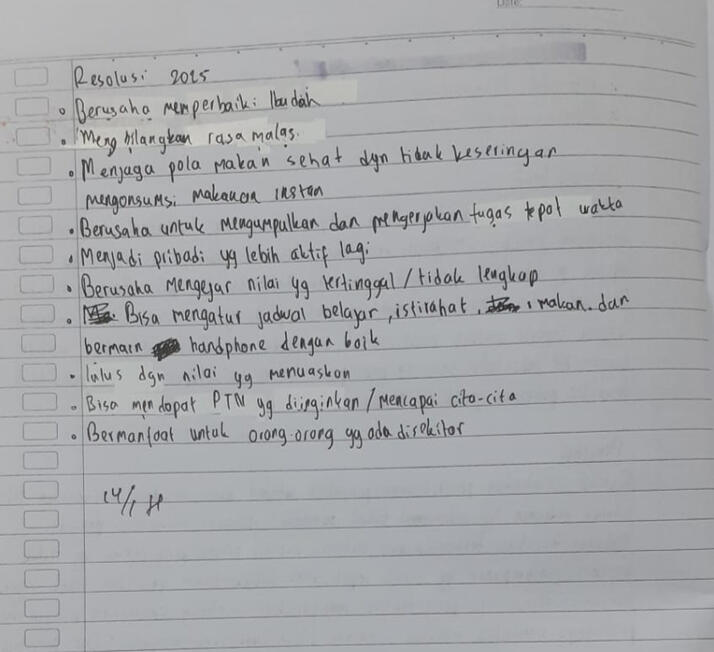 Date:
Resolusi 2025
• Berusaha memperbaiki Ibadah
• Menghilangkan rasa malas.
• Menjaga pola makan sehat dgn tidak keseringan
mengonsumsi makanan instan
• Berusaha untuk mengumpulkan dan mengerjakan tugas tepat waktu
• Menjadi pribadi yg lebih aktif lagi
• Berusaha Mengejar nilai yg tertinggal/tidak lengkap
• Bisa mengatur jadwal belajar, istirahat, makan. dan
bermain handphone dengan baik
• lulus dgn nilai yg memuaskan
• Bisa mendapat PTN yg diinginkan/Mencapai cita-cita
• Bermanfaat untuk orang-orang yg ada disekitar
14/1